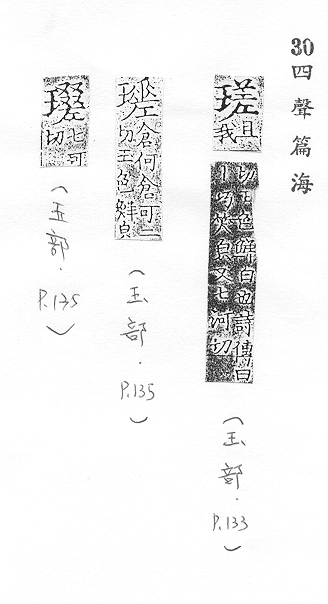 30 四聲篇海
瑳 且我
切玉色鮮白也詩傳曰
笑皃又七河切
(玉部.P.133)
倉何倉可二
切玉色鮮皃
(玉部.P.135)
七可
切
(玉部.P.135)